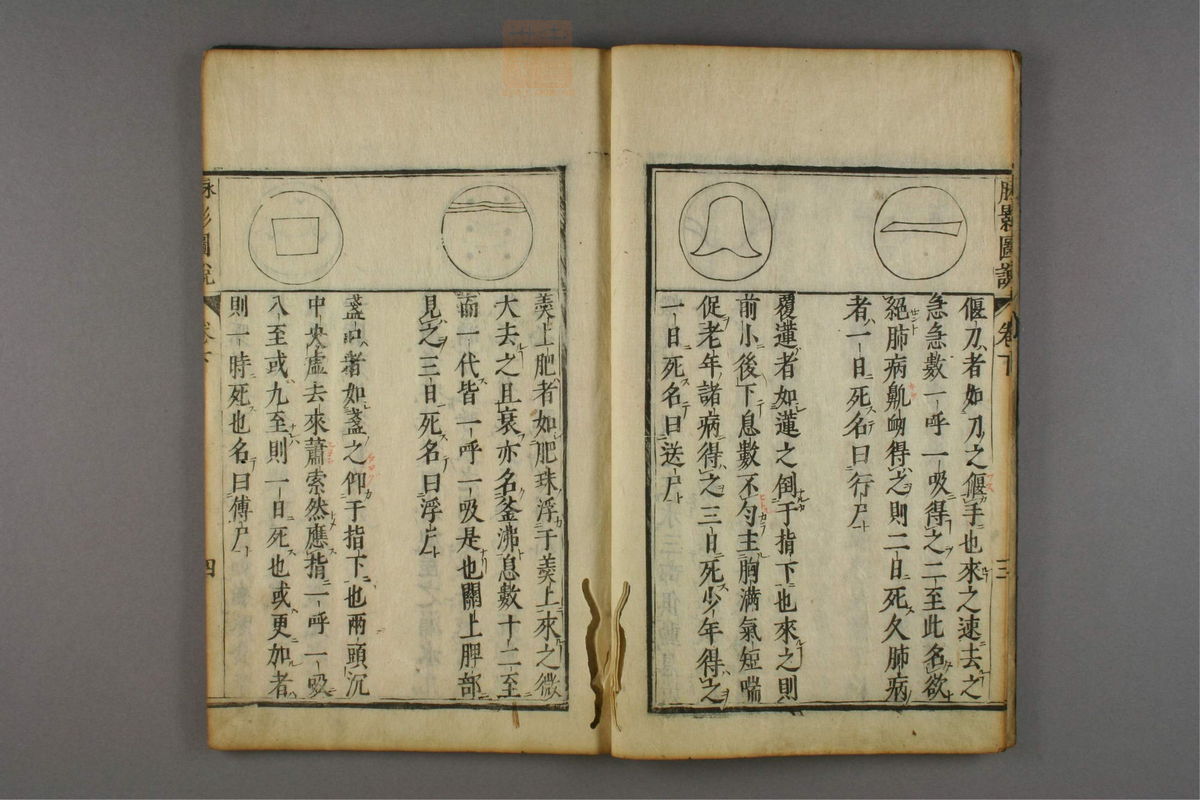 脉影圖說 卷下 三
偃刀者如刀之偃手也來之速去之
急急數一呼一吸得之二至此名欲
絕肺病鼽衂得之則二日死久肺病
者一日死名曰行尸
覆蓮者如蓮之倒于指下也來之則
前小後下息數不勻主胸滿氣短喘
促老年諸病得之三日死少年得之
一日死名曰送尸
羮上肥者如肥珠浮于羮上來之微
大去之且衰亦名釜沸息數十二至
而一代皆一呼一吸是也關上脾部
見之三日死名曰浮尸
盞口者如盞之仰于指下也兩頭沉
中央虛去來蕭索然應指二呼一吸
入至或九至則一日死也或更如者
則一時死也名曰傅尸
影圖說 卷下 四